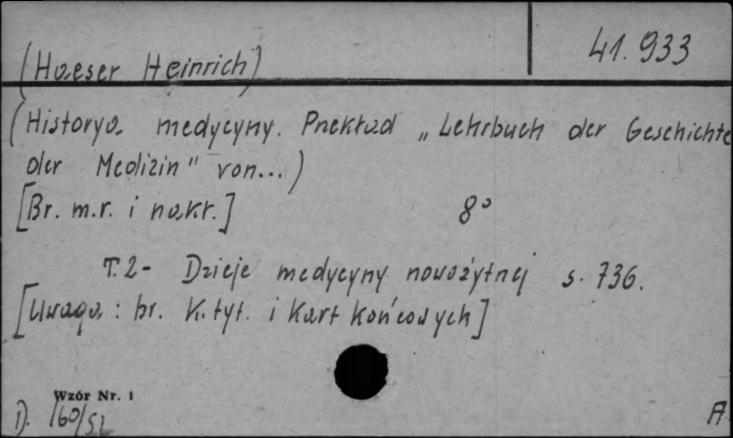 41.933
(Haeser Heinrich)
(Historya medycyny. Przekład „Lehrbuch der Geschichte
der Medizin" von...)
[Br. m.r. i nakł.] 8°
T.2- Dzieje medycyny nowożytnej s. 736.
[Uwaga: br. k. tyt. i kart końcowych]
Wzór Nr. 1
D. 160/52 A